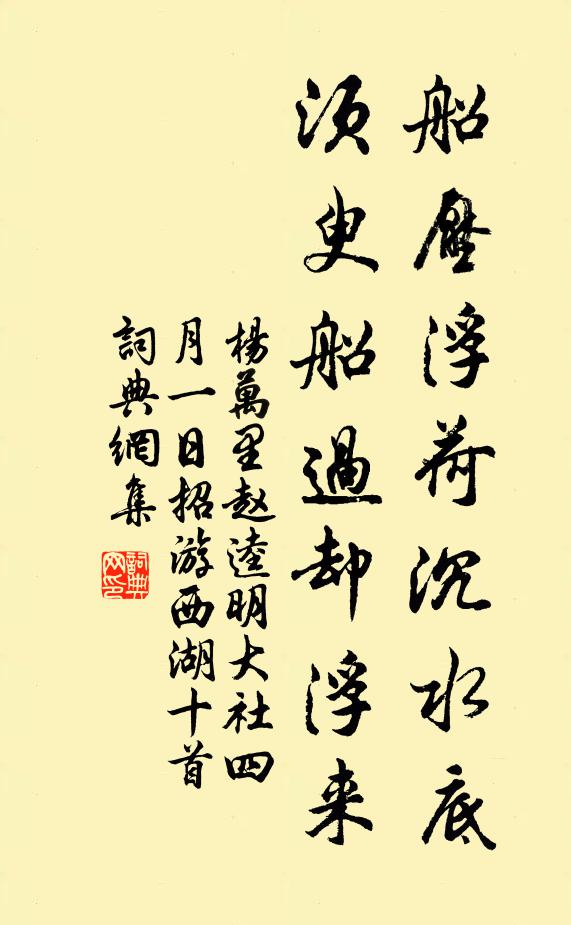 船壓浮荷沉水底
須臾船過却浮来
楊萬里赵逵明大社四
月一日招游西湖十首
詞典網集
詞典网印